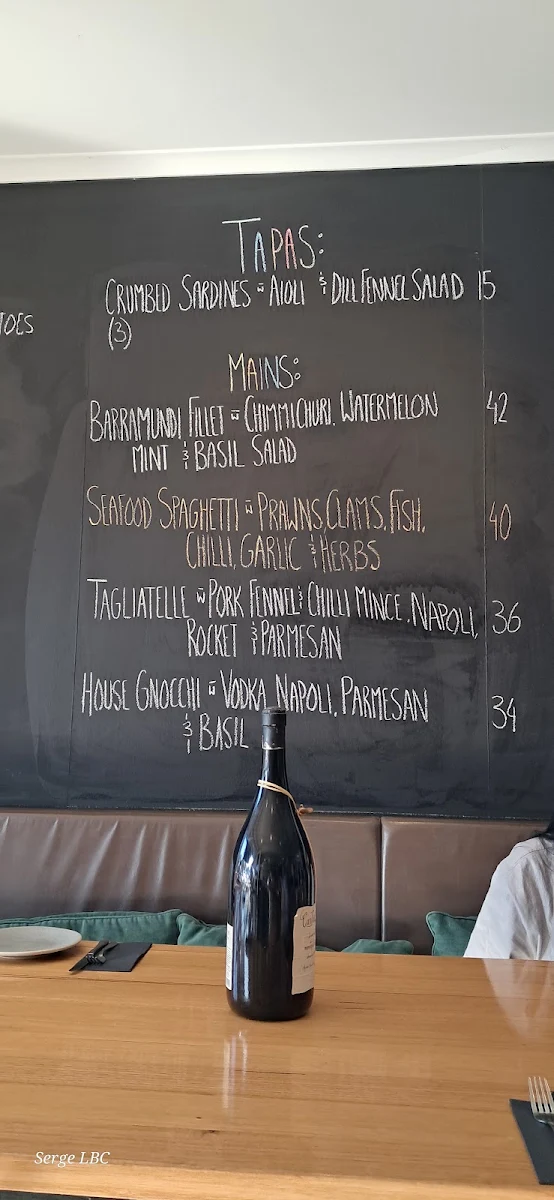 TAPAS:
CRUMBED SARDINES w AIOLI & DILL FENNEL SALAD 15
TOES
(3)
MAINS:
BARRAMUNDI FILLET w CHIMMICHURI, WATERMELON 42
MINT & BASIL SALAD
SEAFOOD SPAGHETTI w PRAWNS, CLAMS, FISH, 40
CHILLI, GARLIC & HERBS
TAGLIATELLE w PORK FENNEL & CHILLI MINCE, NAPOLI, 36
ROCKET & PARMESAN
HOUSE GNOCCHI w VODKA NAPOLI, PARMESAN 34
& BASIL
Serge LBC